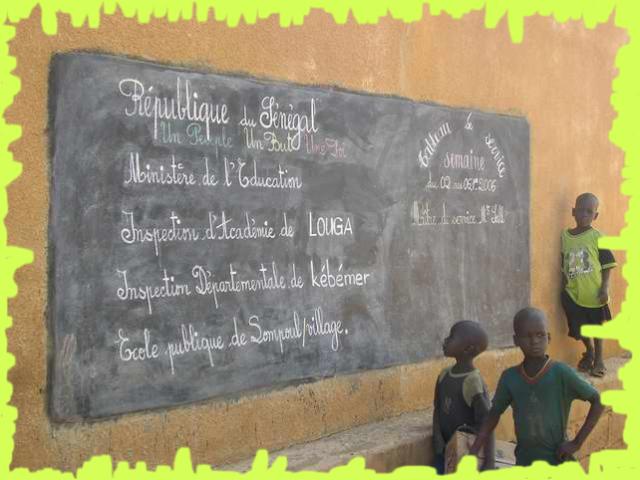 République du Sénégal
Un Peuple Un But Une Foi
Ministère de l'Education
Inspection d'Académie de LOUGA
Inspection Départementale de kébémer
Ecole publique de Sompoul/village.
de service
semaine
du 02 au
2006
de service
23